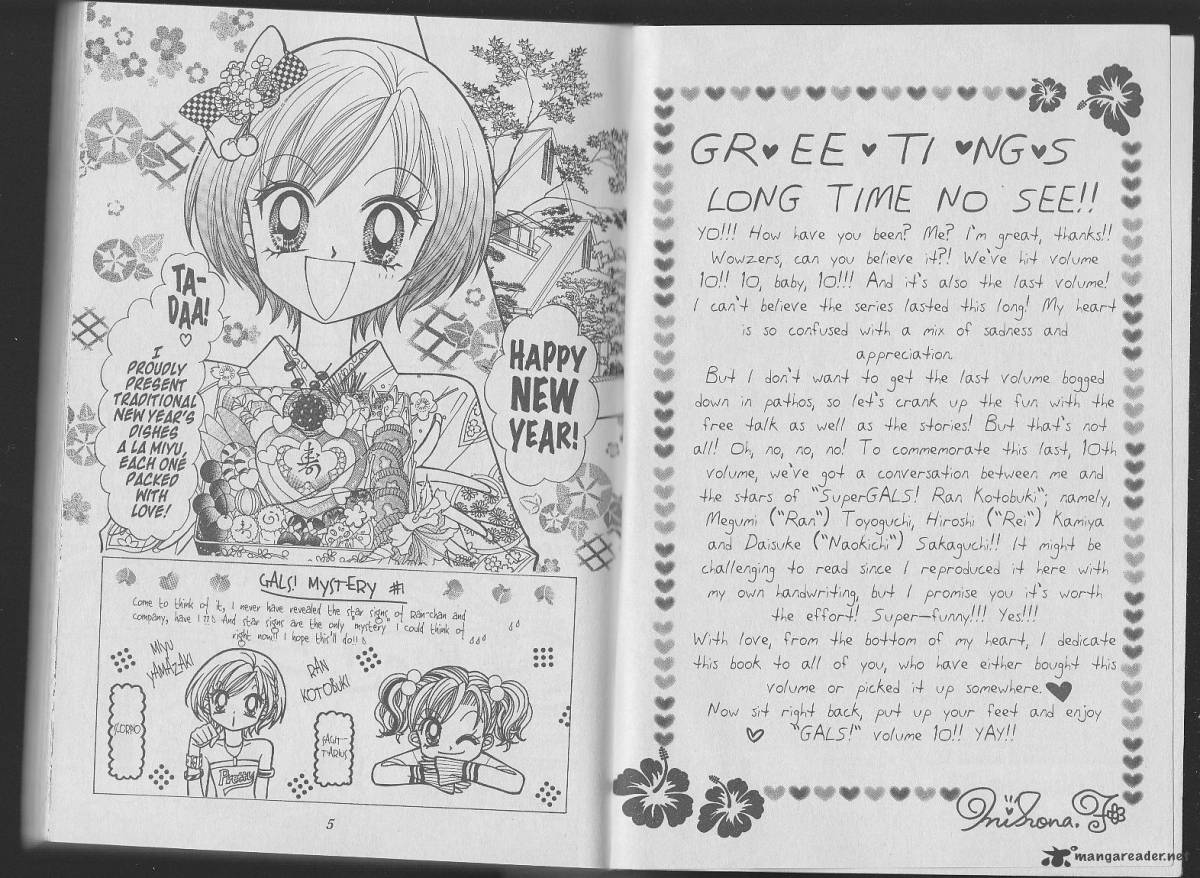 TA-
DAA!
I
PROUDLY
PRESENT
TRADITIONAL
NEW YEAR'S
DISHES
A LA MIYU,
EACH ONE
PACKED
WITH
LOVE!
HAPPY
NEW
YEAR!
寿
GALS! MYSTERY #1
Come to think of it, I never have revealed the star signs of Ran-chan and
company, have I?!! And star signs are the only "mystery" I could think of
right now!! I hope this'll do!!
MIYU
YAMAZAKI
SCORPIO
RAN
KOTOBUKI
SAGIT-
TARIUS
Pretty
5
GR♥EE♥TI♥NG♥S
LONG TIME NO SEE!!
YO!!! How have you been? Me? I'm great, thanks!!
Wowzers, can you believe it?! We've hit volume
10!! 10, baby, 10!!! And it's also the last volume!
I can't believe the series lasted this long! My heart
is so confused with a mix of sadness and
appreciation.
But I don't want to get the last volume bogged
down in pathos, so let's crank up the fun with the
free talk as well as the stories! But that's not
all! Oh, no, no, no! To commemorate this last, 10th
volume, we've got a conversation between me and
the stars of "SuperGALS! Ran Kotobuki"; namely,
Megumi ("Ran") Toyoguchi, Hiroshi ("Rei") Kamiya
and Daisuke ("Naokichi") Sakaguchi!! It might be
challenging to read since I reproduced it here with
my own handwriting, but I promise you it's worth
the effort! Super-funny!!! Yes!!!
With love, from the bottom of my heart, I dedicate
this book to all of you, who have either bought this
volume or picked it up somewhere. ♥
Now sit right back, put up your feet and enjoy
♡ "GALS!" volume 10!! YAY!!
mangareader.net